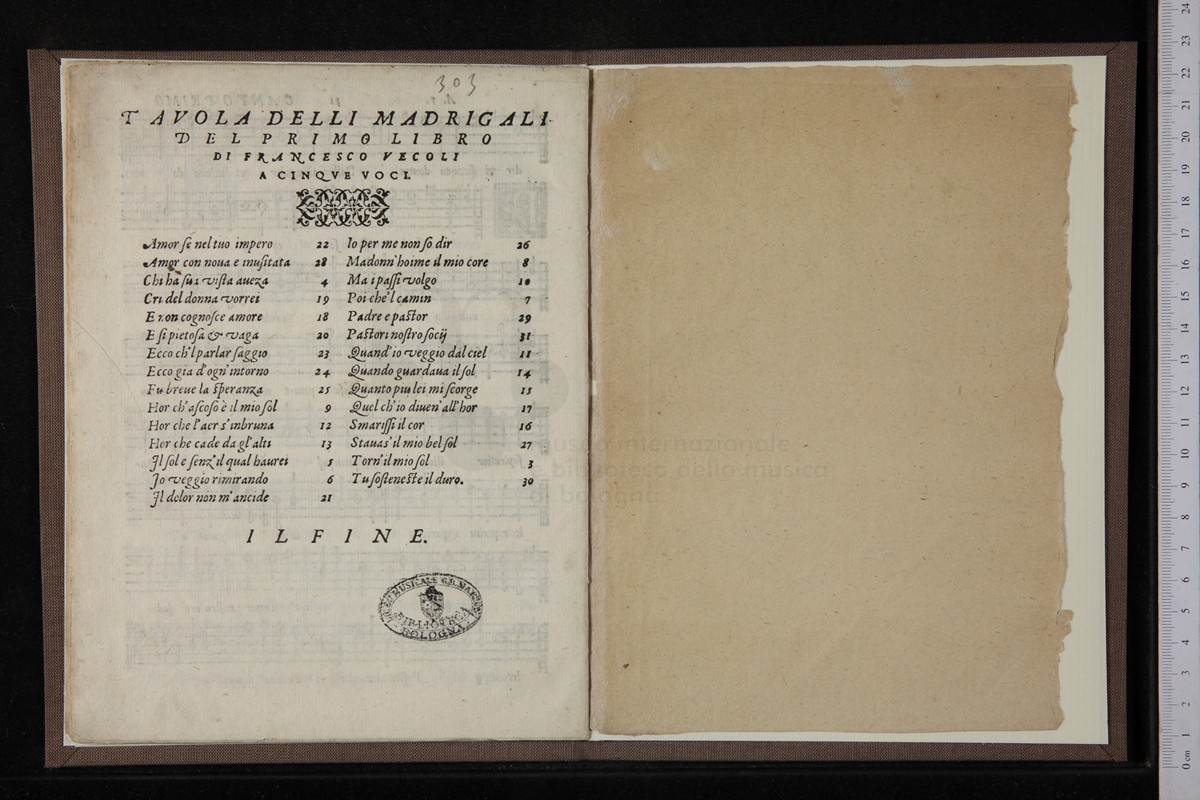 303
TAVOLA DELLI MADRIGALI
DEL PRIMO LIBRO
DI FRANCESCO VECOLI
A CINQVE VOCI.
Amor ſe nel tuo impero 22
Amor con noua e inuſitata 28
Chi ha ſua viſta aueza 4
Cri del donna vorrei 19
E non cognoſce amore 18
E ſi pietoſa & vaga 20
Ecco ch'l parlar ſaggio 23
Ecco gia d'ogn'intorno 24
Fu breue la ſperanza 25
Hor ch'aſcoſo è il mio ſol 9
Hor che l'aer s'inbruna 12
Hor che cade da gl'alti 13
Il ſol e ſenz'il qual haurei 5
Io veggio rimirando 6
Il dolor non m'ancide 21
Io per me non ſo dir 26
Madonn'hoime il mio core 8
Ma i paſſi volgo 10
Poi che'l camin 7
Padre e paſtor 29
Paſtori noſtro ſocij 31
Quand'io veggio dal ciel 11
Quando guardaua il ſol 14
Quanto piu lei mi ſcorge 15
Quel ch'io diuen'all'hor 17
Smariſſi il cor 16
Stauas'il mio bel ſol 27
Torn'il mio ſol 3
Tu ſoſteneſte il duro. 30
IL FINE.
LICEO MUSICALE
BIBLIOTECA
BOLOGNA
museo internazionale
e biblioteca della musica
di bologna
0 cm 1 2 3 4 5 6 7 8 9 10 11 12 13 14 15 16 17 18 19 20 21 22 23 24